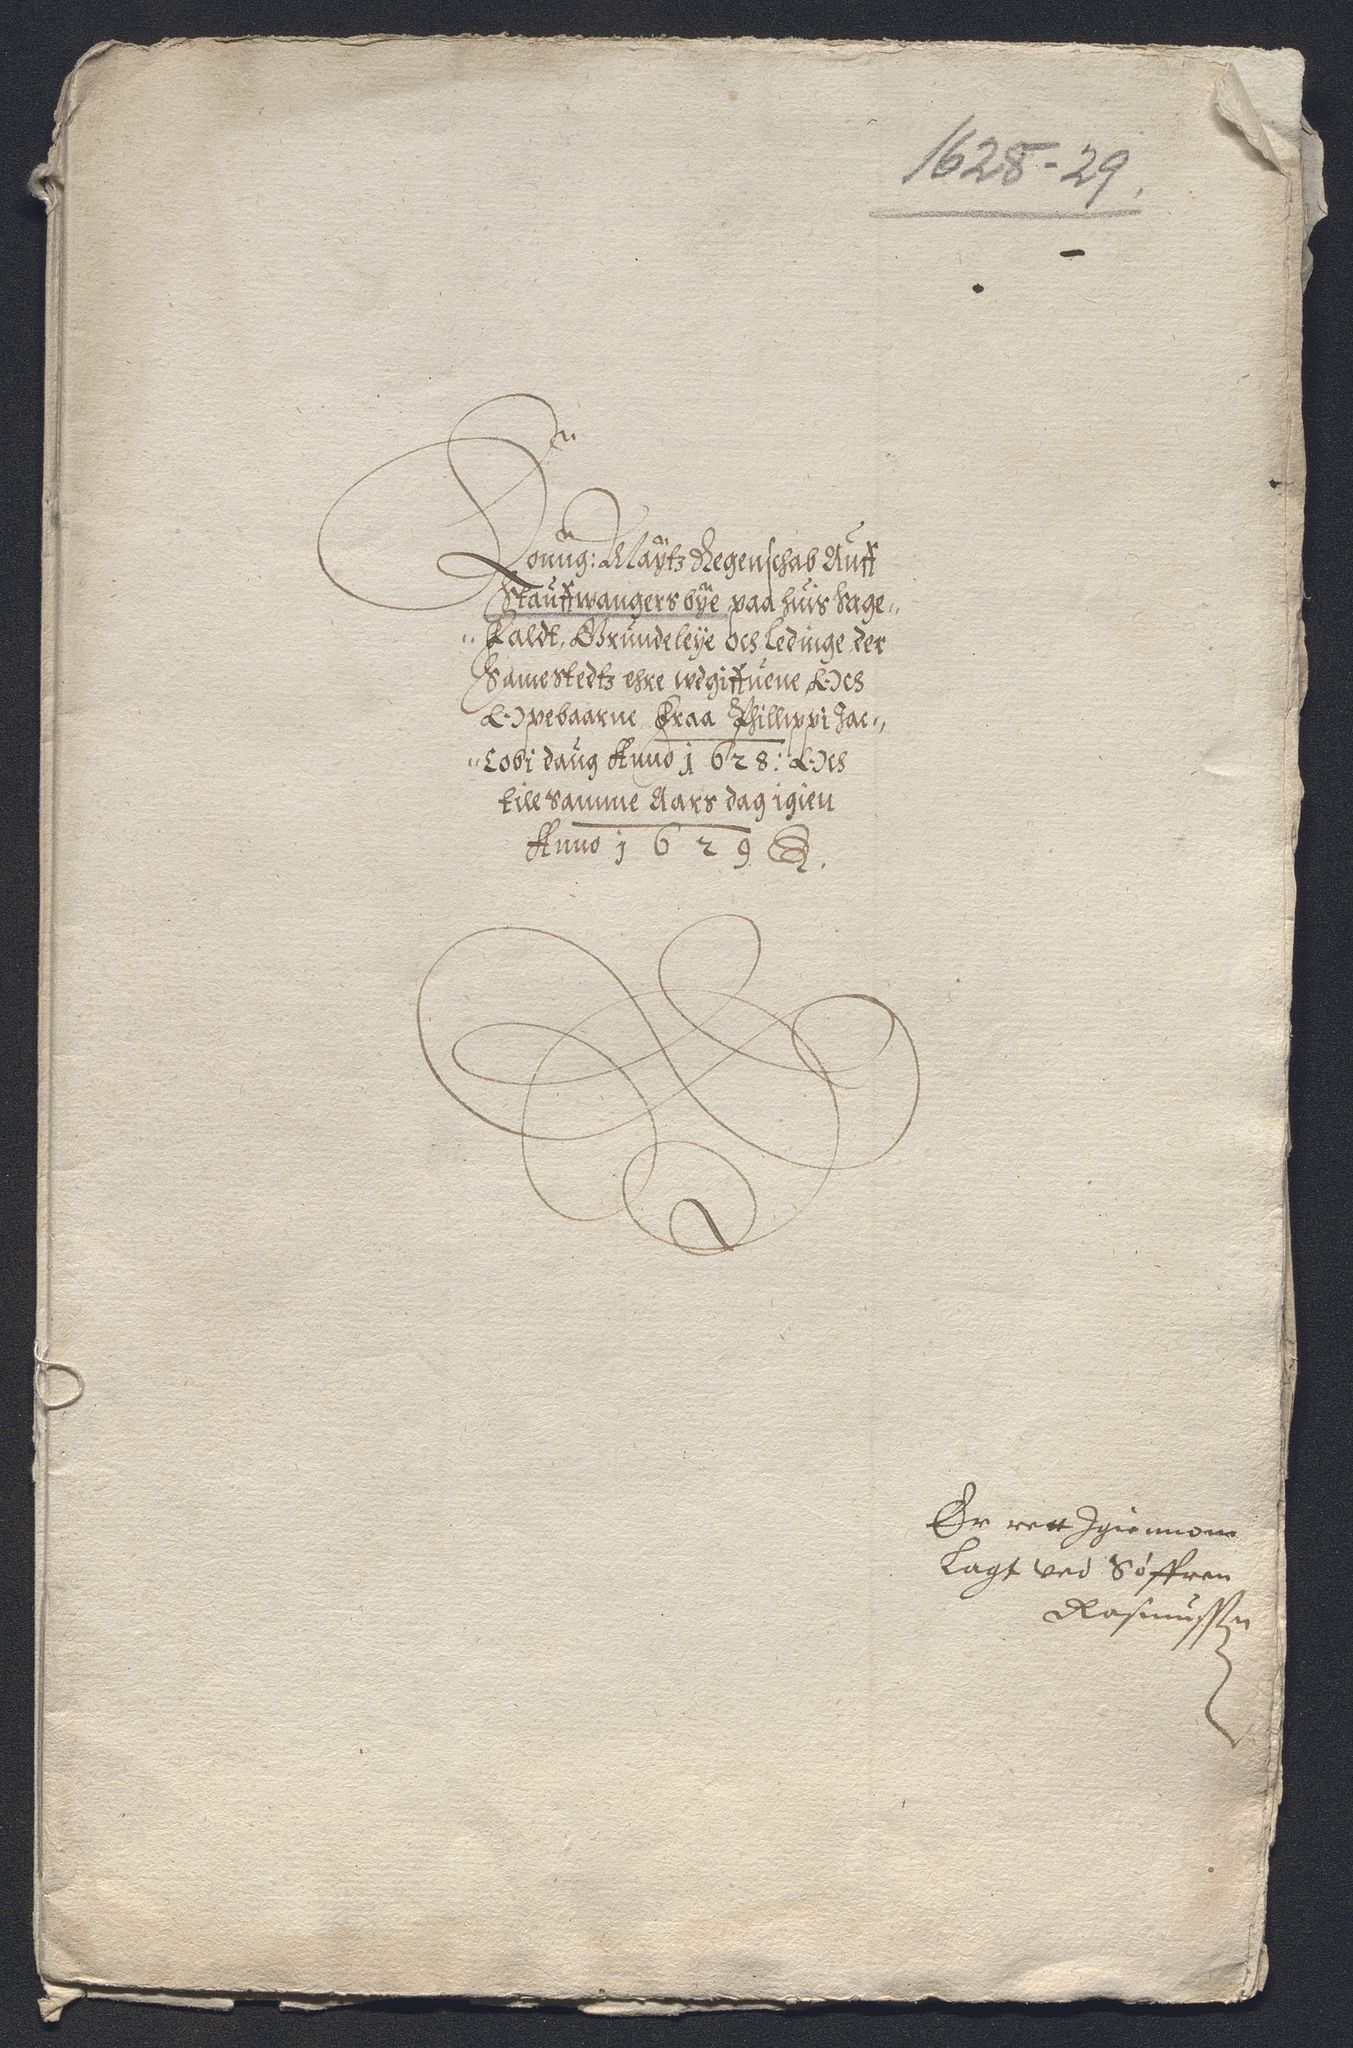 1628-29.
Konng: Maÿtz Regenschab Auff
Stauffwangers bÿe paa huis Sage„
„faldt, Grundeleÿe och Ledinge der
Samestedtz ehre wdgiffuene Och
Opebaarne fraa Phillippi Jac„
„Cobi daug Anno 1628: Och
till samme Aars dag igien
Anno 1629
Er rett Igiennom
Lagt ved Søffren
Rasmussen